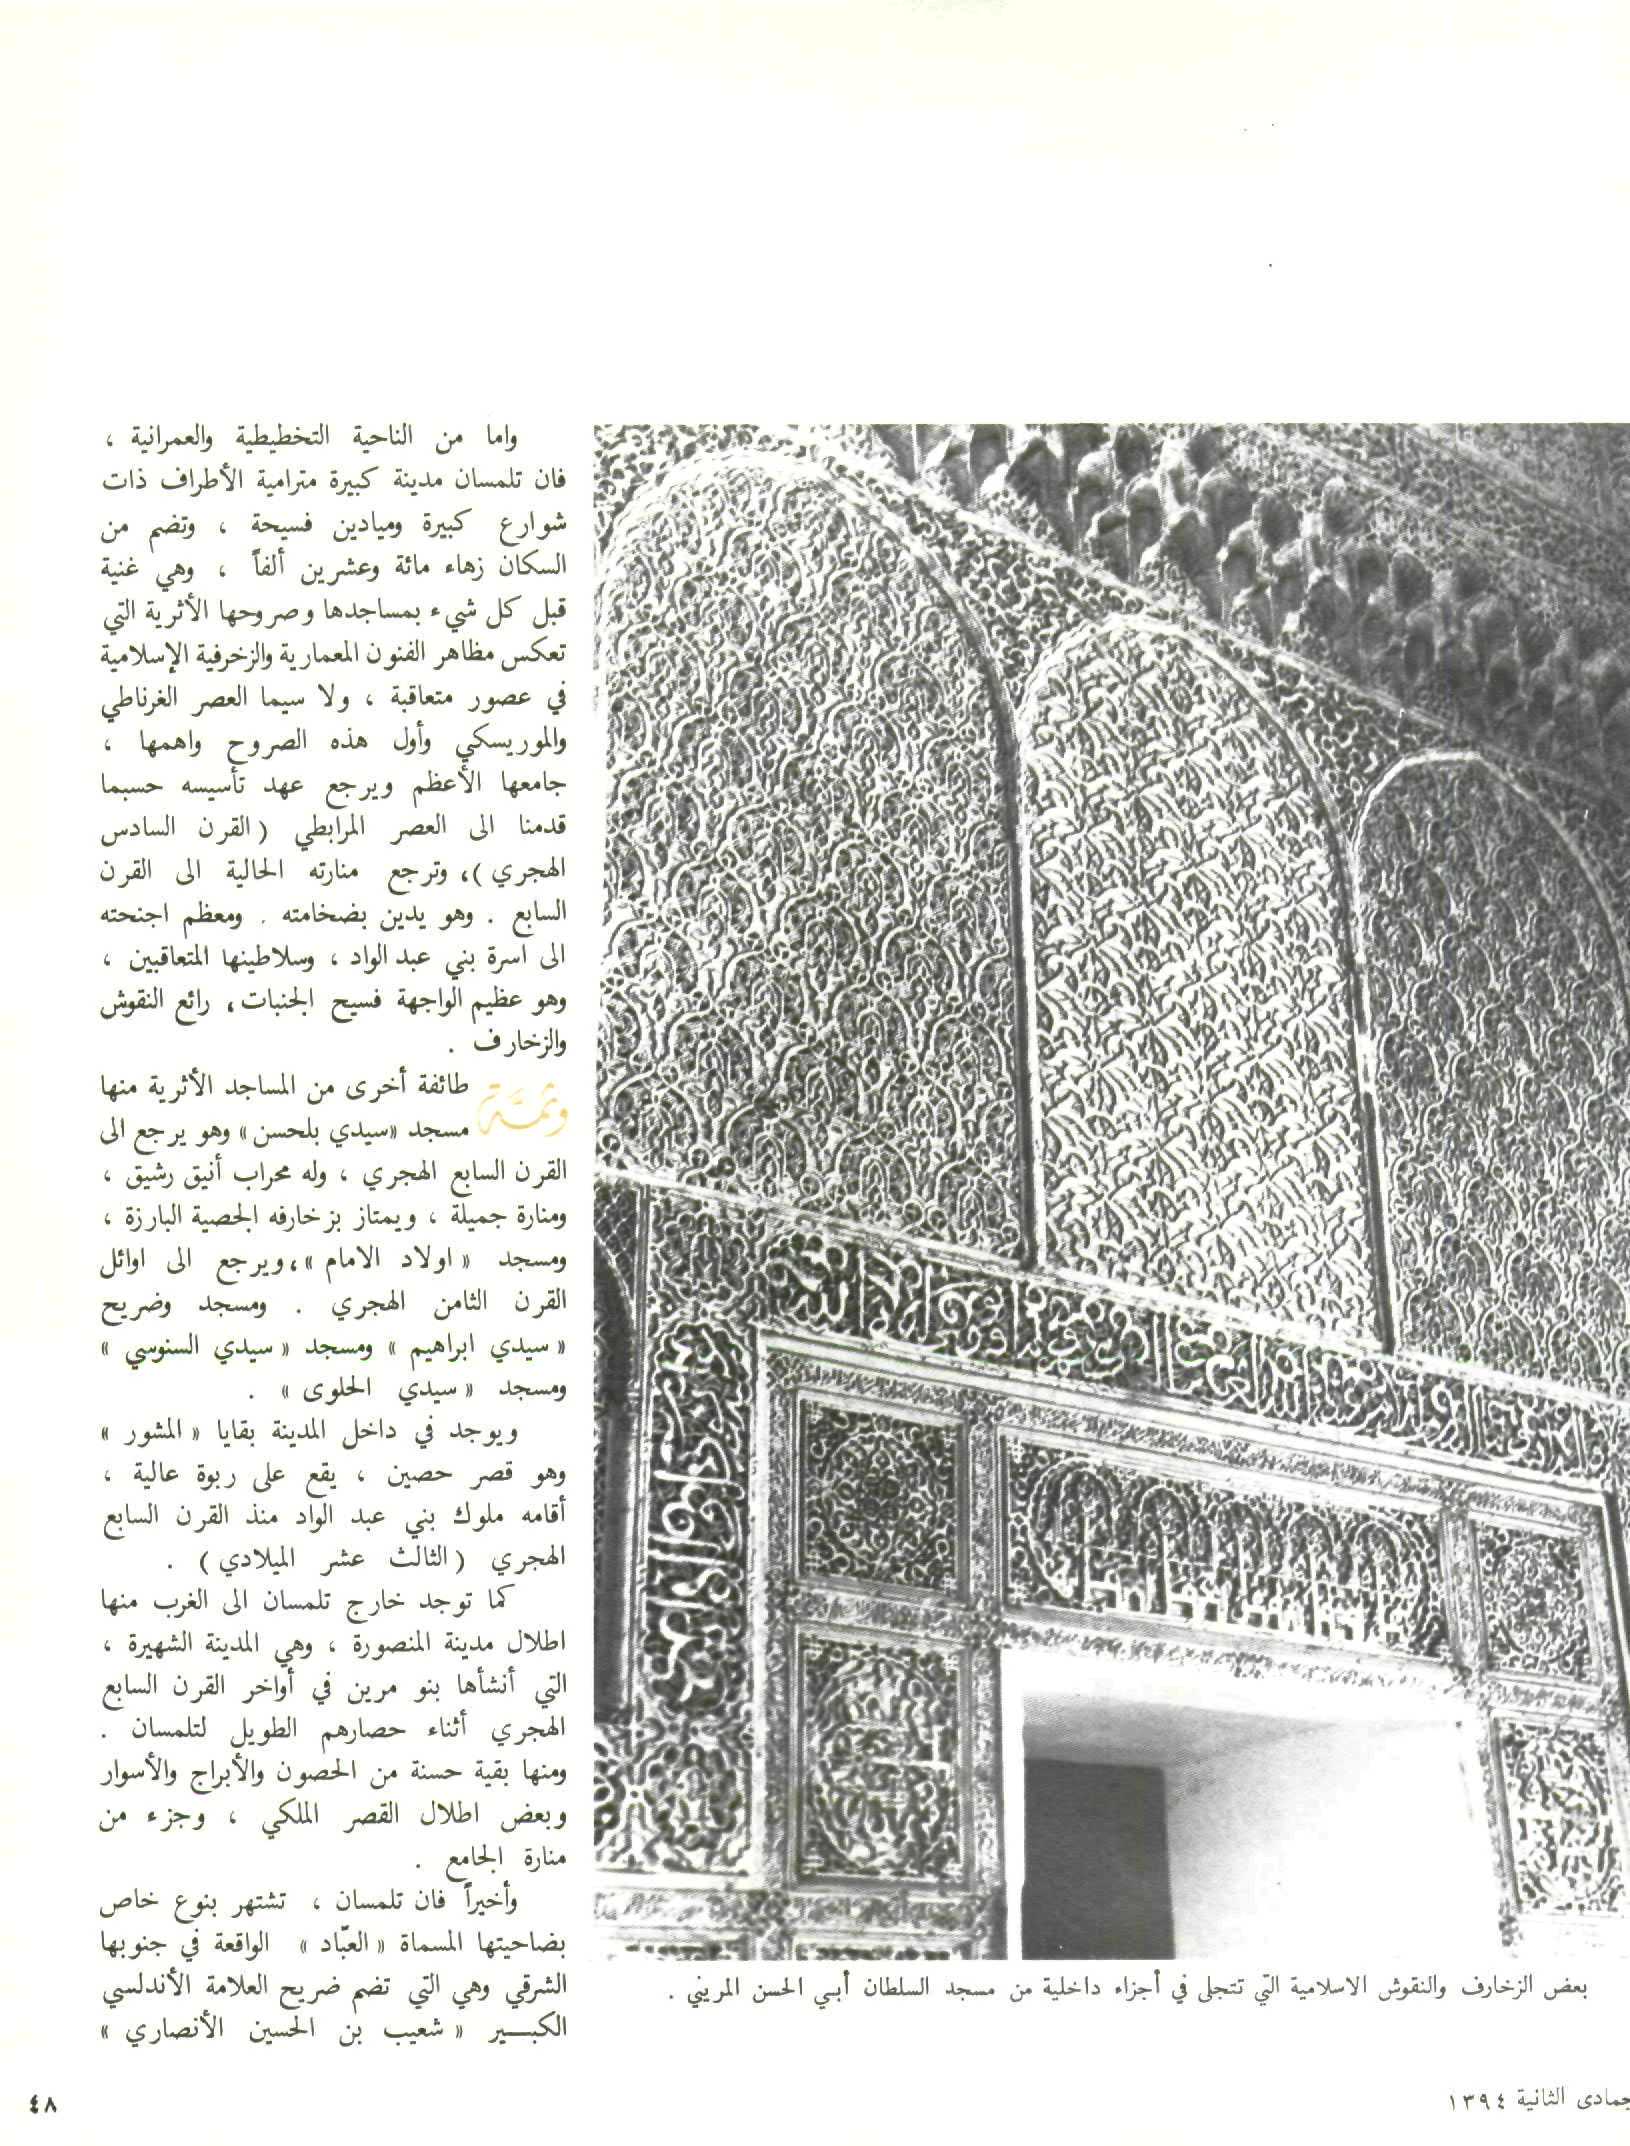 واما من الناحية التخطيطية والعمرانية ،
فان تلمسان مدينة كبيرة مترامية الأطراف ذات
شوارع كبيرة وميادين فسيحة ، وتضم من
السكان زهاء مائة وعشرين ألفاً ، وهي غنية
قبل كل شيء بمساجدها وصروحها الأثرية التي
تعكس مظاهر الفنون المعمارية والزخرفية الإسلامية
في عصور متعاقبة ، ولا سيما العصر الغرناطي
والموريسكي وأول هذه الصروح واهمها ،
جامعها الأعظم ويرجع عهد تأسيسه حسبما
قدمنا الى العصر المرابطي (القرن السادس
الهجري )، وترجع منارته الحالية الى القرن
السابع . وهو يدين بضخامته . ومعظم اجنحته
الى اسرة بني عبد الواد ، وسلاطينها المتعاقبين ،
وهو عظيم الواجهة فسيح الجنبات ، رائع النقوش
والزخارف .
وثمَّة طائفة أخرى من المساجد الأثرية منها
مسجد «سيدي بلحسن» وهو يرجع الى
القرن السابع الهجري ، وله محراب أنيق رشيق ،
ومنارة جميلة ، ويمتاز بزخارفه الجصية البارزة ،
ومسجد « اولاد الامام »، ويرجع الى اوائل
القرن الثامن الهجري . ومسجد وضريح
« سيدي ابراهيم » ومسجد « سيدي السنوسي »
ومسجد « سيدي الحلوى » .
ويوجد في داخل المدينة بقايا « المشور »
وهو قصر حصين ، يقع على ربوة عالية ،
أقامه ملوك بني عبد الواد منذ القرن السابع
الهجري (الثالث عشر الميلادي) .
كما توجد خارج تلمسان الى الغرب منها
اطلال مدينة المنصورة ، وهي المدينة الشهيرة ،
التي أنشأها بنو مرين في أواخر القرن السابع
الهجري أثناء حصارهم الطويل لتلمسان .
ومنها بقية حسنة من الحصون والأبراج والأسوار
وبعض اطلال القصر الملكي ، وجزء من
منارة الجامع .
وأخيراً فان تلمسان ، تشتهر بنوع خاص
بضاحيتها المسماة « العبّاد » الواقعة في جنوبها
الشرقي وهي التي تضم ضريح العلامة الأندلسي
الكبــير « شعيب بن الحسين الأنصاري »
بعض الزخارف والنقوش الاسلامية التي تتجلى في أجزاء داخلية من مسجد السلطان أبـي الحسن المريني .
جمادى الثانية ١٣٩٤
٤٨